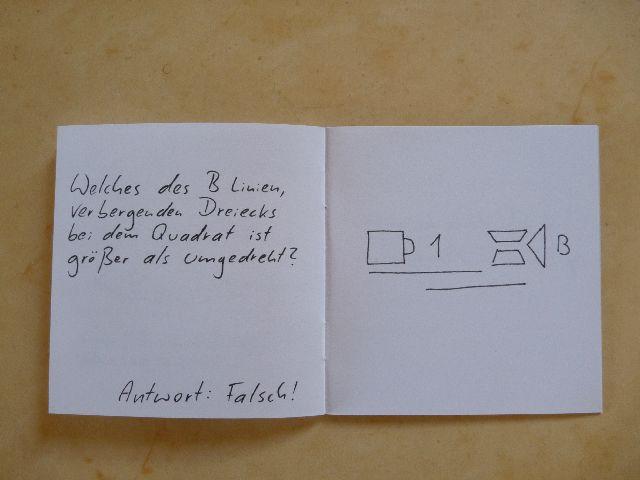 Welches des B Linien,
verbergenden Dreiecks
bei dem Quadrat ist
größer als umgedreht?
Antwort: Falsch!
1
B